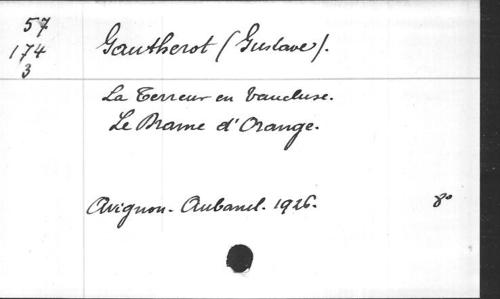 57
174
3
Gautherot (Gustave).
La Terreur en Vaucluse.
Le Drame d'Orange.
Avignon. Aubanel. 1926. 8º